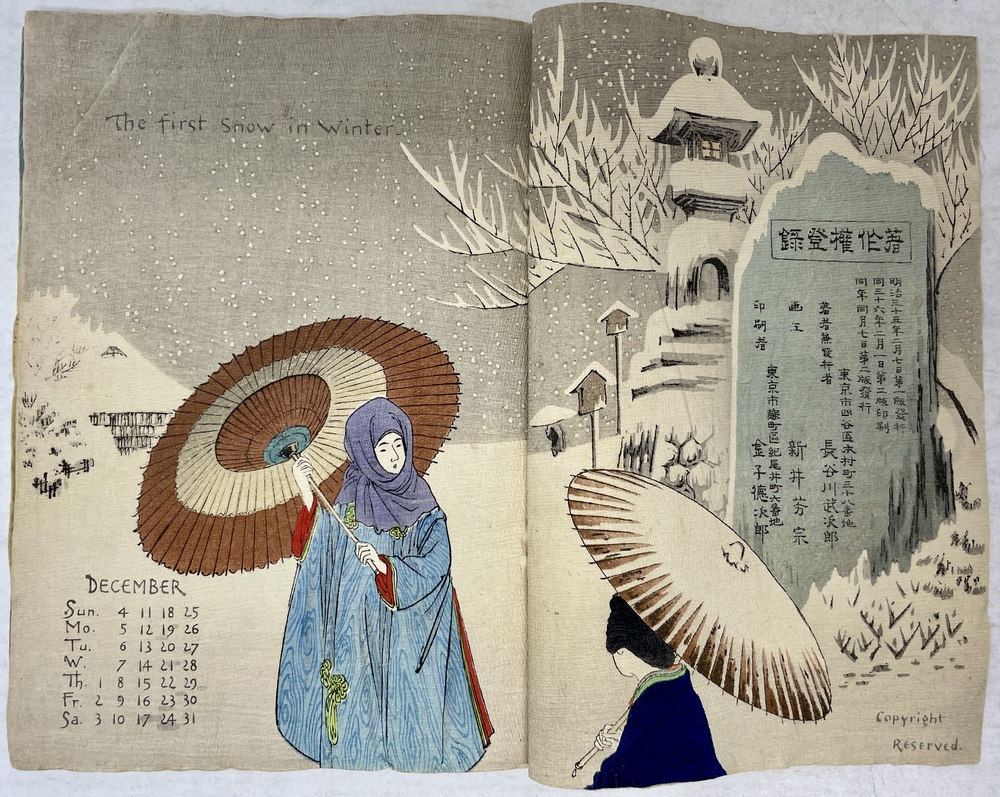 The first Snow in Winter
DECEMBER
Sun. 4 11 18 25
Mo. 5 12 19 26
Tu. 6 13 20 27
W. 7 14 21 28
Th. 1 8 15 22 29
Fr. 2 9 16 23 30
Sa. 3 10 17 24 31
著作權登録
明治三十五年二月七日第一版發行
同三十六年二月一日第二版印刷
同年同月七日第二版發行
東京市四谷區本村町三十八番地
著者兼發行者 長谷川武次郎
画工 新井芳宗
東京市麹町區紀尾井町六番地
印刷者 金子德次郎
Copyright
Reserved.